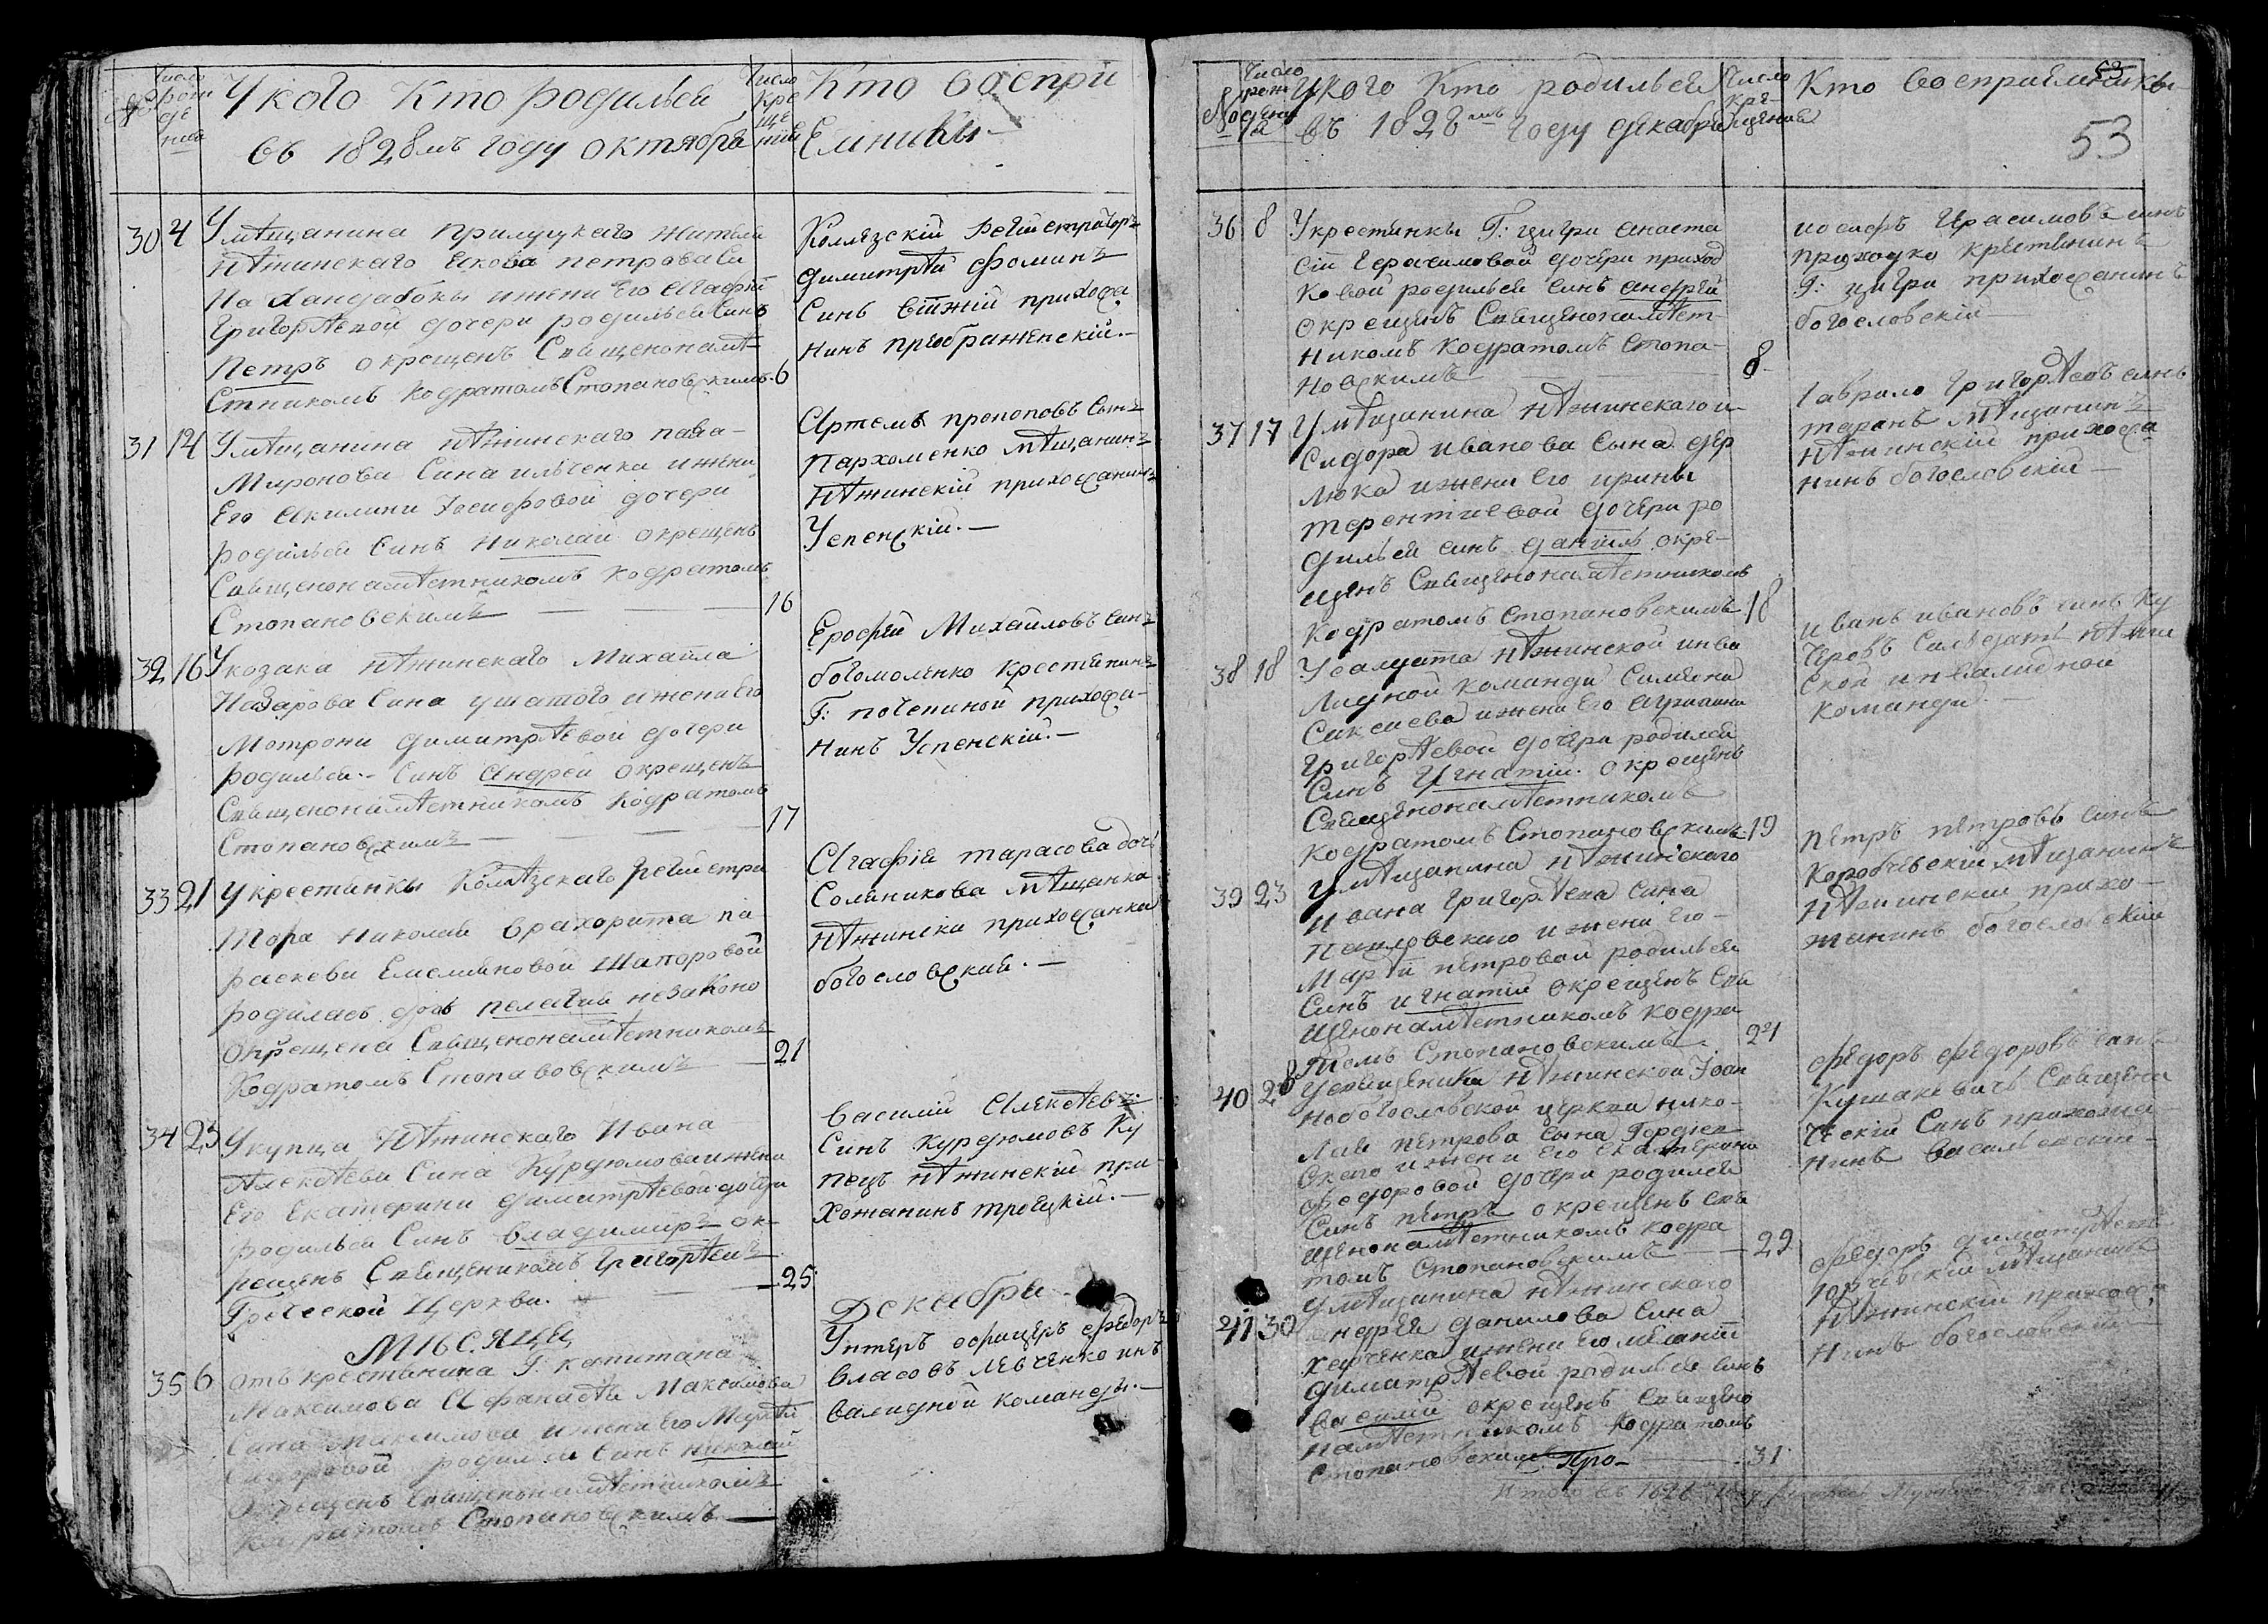 Число рож де ния
У кого Кто родилься
въ 1828мъ году октября
Число кре ще ния
Кто воспри
Емники
30 4
У мѣщанина прилуцкаго жителя
нѣжинскаго Якова петрова си
на Хандабоки и жени Его Агафіи
Григорѣевой дочери родилься Синъ
Петръ окрещенъ Священонамѣ
Стникомъ Кодратомъ Стопановскимъ. 6
Коллежскій Регистраторъ
Димитрѣй Фоминъ
Синъ прихожа
нинъ преображенскій.
31 14
У мѣщанина нѣжинскаго
Миронова Сина илченка и жени
Его Акилини Іосифовой дочери
родилься Синъ Николай окрещенъ
Священонамѣстникомъ Кодратомъ
Стопановскимъ 16
Артемъ прокоповъ Синъ
Пархоменко мѣщанинъ
Нѣжинскій прихожанинъ
Успенскій.
32 16
У козака нѣжинскаго Михайла
Назарова Сина ушатого и жени Его
Мотрони Димитрѣевой дочери
родилься Синъ Андрей окрещенъ
Священонамѣстникомъ Кодратомъ
Стопановскимъ 17
Ерофей Михайловъ Синъ
богомоленко крестянинъ
Г: почепиной прихожа
нинъ Успенскій.
33 21
У крестянки Колѣзскаго регистра
тора Николая па
раскеви Емеляновой Шапоровой
родилась дочь пелагия незаконо
Окрещена Священонамѣстникомъ
Кодратомъ Стопановскимъ 21
Агафія тарасова дочь
Соляникова мѣщанка
нѣжинска прихожанка
богословский.
34 25
У купца Нѣжинскаго Ивана
Алексѣева Сина Курдюмова и жени
Его Екатерини димитрѣевой дочери
родилься Синъ владимиръ ок
рещенъ Священикомъ Григорѣемъ
Греческой Церкви. 25
Василий Алексѣевъ
Синъ Курдюмовъ ку
пецъ нѣжинскій при
хожанинъ троецкій.
Мѣсяца
Декабря
35 6
отъ крестянина Г: капитана
Максимова Афанасѣя Максимова
Сина максимова и жени Его
родился Синъ николай
Окрещенъ Священонамѣстникомъ
Кодратомъ Стопановскимъ
Унтеръ офицеръ Федоръ
Власовъ Левченко ин
валидной команды.
Число рож дения
У кого Кто родилься
въ 1828мъ году декабря
Число кре щения
Кто восприемники
53
53
36 8
У крестянки Г: цигри анаста
сіи Герасимовой дочери приход
ковой родилься синъ андрей
окрещенъ Священонамѣст
никомъ Кодратомъ Стопа
новскимъ 8
иосифъ Герасимовъ синъ
приходко крестянинъ
Г: цигри прихожанинъ
богословскій
37 17
У мѣщанина нѣжинскаго
Сидора иванова Сына дер
люка и жени Его ирины
терентиевой дочери ро
дилься синъ даніилъ окре
щенъ Священонамѣстникомъ
Кодратомъ Стопановскимъ 18
Гаврило Григорѣевъ синъ
таранъ мѣщанинъ
нѣжинскій прихожа
нинъ богословскій
38 18
У салдата нѣжинской инва
лидной команди Симеона
и жени Его
Григорѣевой дочери родился
Синъ Игнатій окрещенъ
Священонамѣстникомъ
Кодратомъ Стопановскимъ 19
иванъ ивановъ синъ
нѣжин
ской инвалидной
команди
39 23
У мѣщанина нѣжинского
Ивана Григорѣева Сина
Павловского и жени Его
Маріи петровой родилься
Синъ игнатій окрещенъ Свя
щенонамѣстникомъ кодра
томъ Стопановскимъ 24
Петръ петровъ синъ
Коробчевскій мѣщанинъ
Нѣжинскій прихо
жанинъ богословскій
40 28
У священика нѣжинской Іоан
нобогословской церкви нико
лая петрова сына Гордіев
ского и жени его Екатерини
федоровой дочери родился
Синъ петръ окрещенъ свя
щенонамѣстникомъ кодра
томъ Стопановскимъ 29
Федоръ федоровъ синъ
Кушакевичъ Священи
ческій Синъ прихожа
нинъ васильевскій
41 30
У мѣщанина нѣжинскаго
андрея данилова Сина
Харченка и жени Его меланіи
димитрѣевой родилься синъ
Василій окрещенъ Священо
намѣстникомъ Кодратомъ
Стопановскимъ 31
Федоръ димитрѣевъ
мѣщанинъ
нѣжинскій прихожа
нинъ богословскій
Итого въ 1828 году